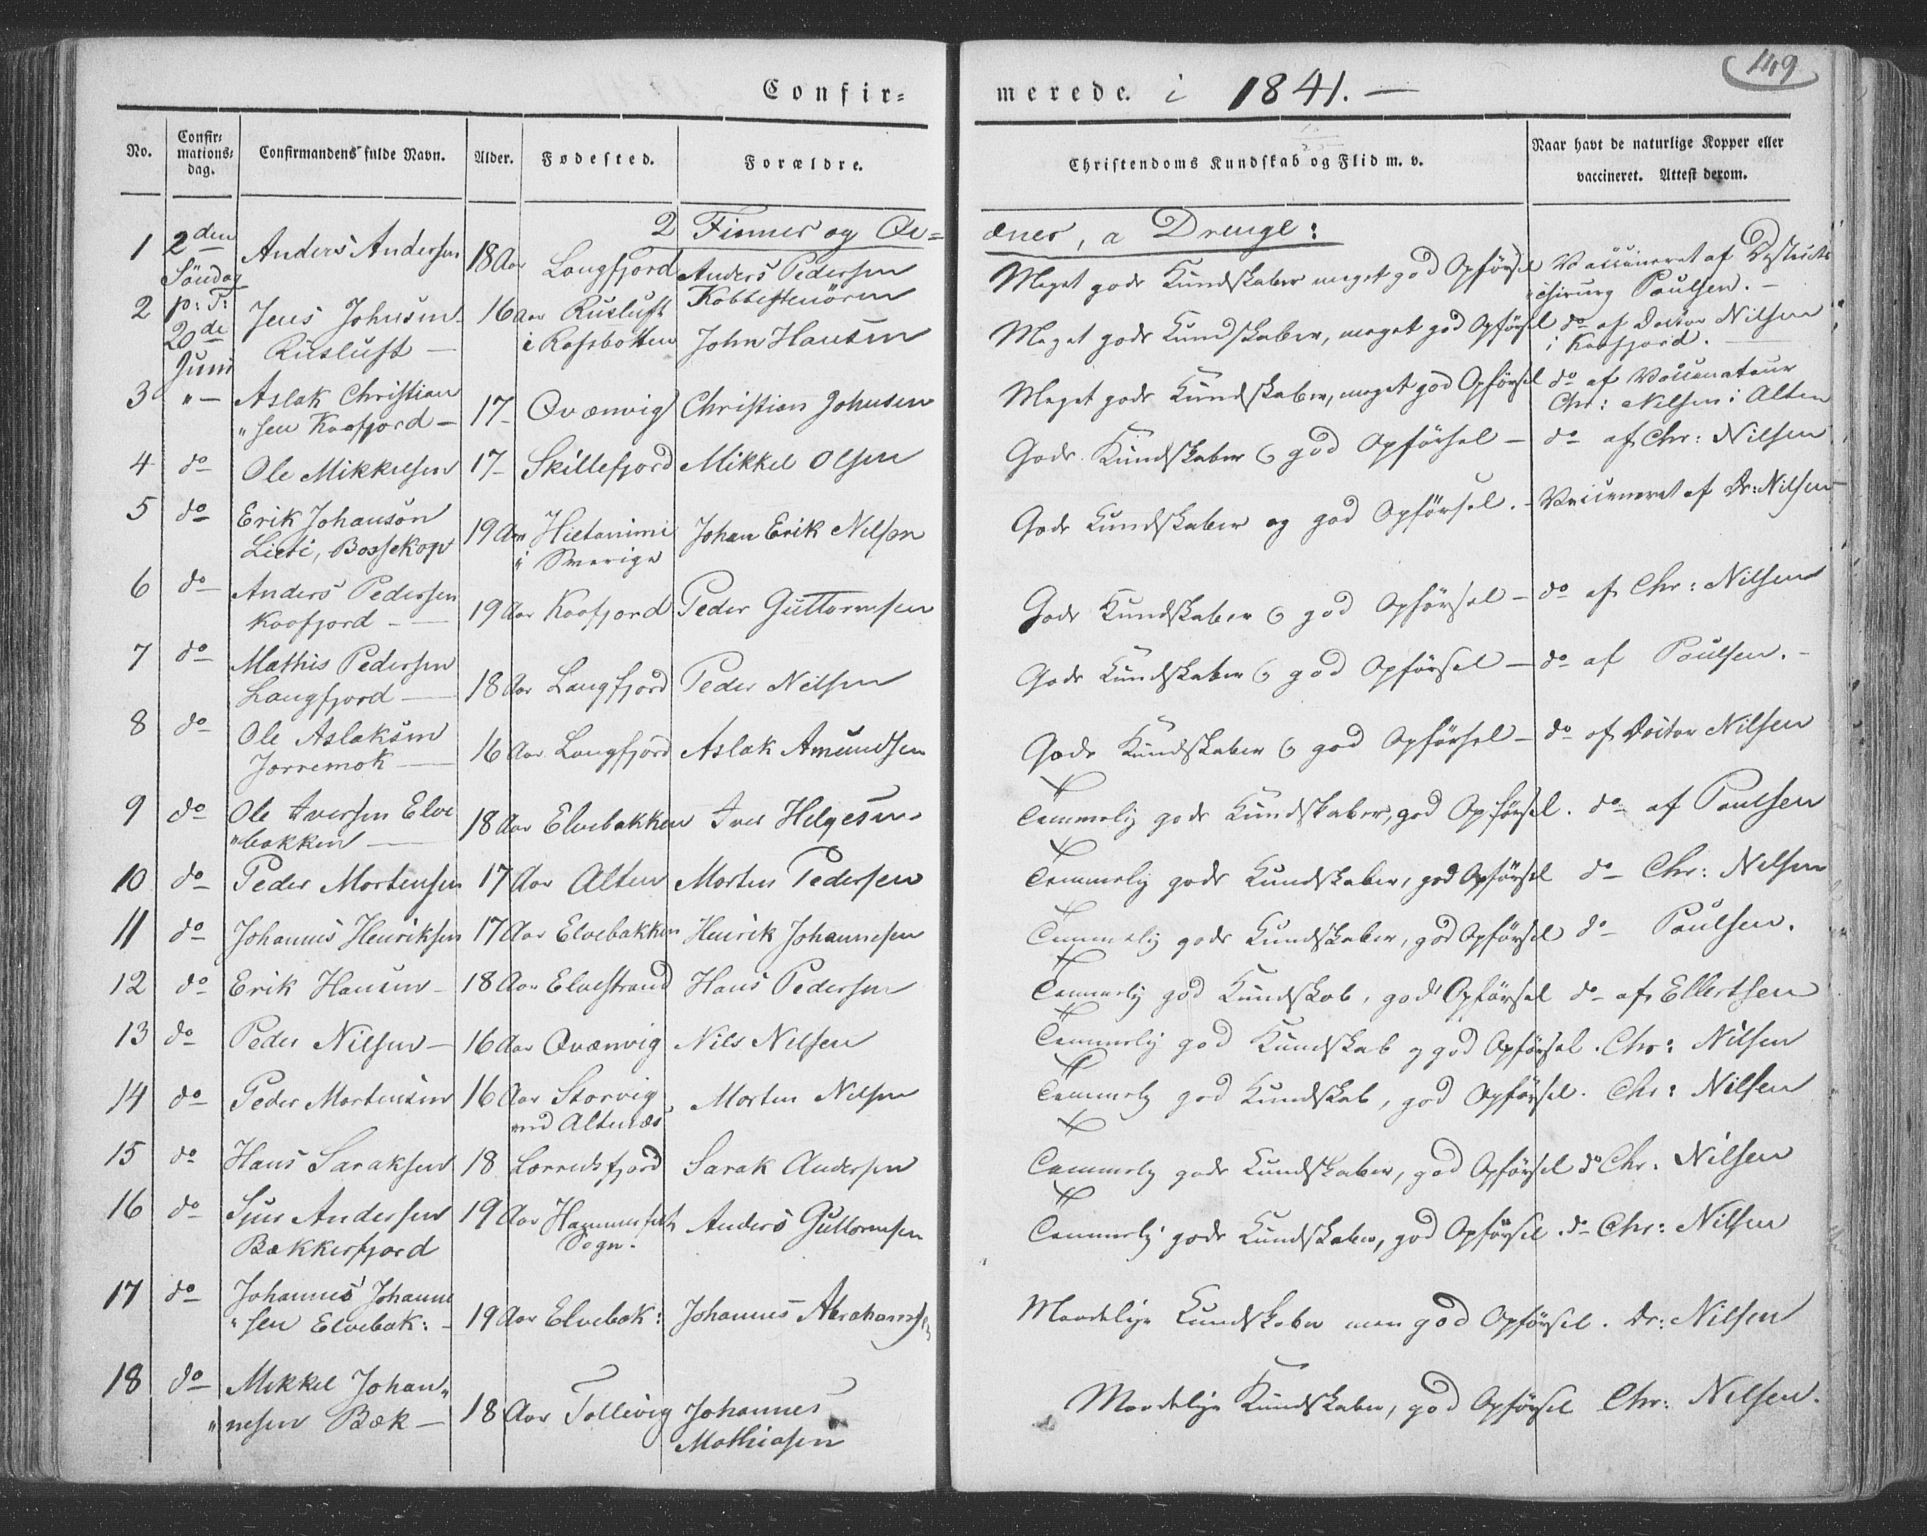 149
Confir=merede. i 1841. —
No. Confir=mations=dag. Confirmandens fulde Navn. Alder. Fødested. Forældre. Christendoms Kundskab og Flid m. v. Naar havt de naturlige Kopper eller vaccineret. Attest derom.
2 Finner og Qv=æner, a Drenge:
1 2den Søndag Anders Andersen 18 Aar Langfjord Anders Pedersen Kobbestenören Meget gode Kundskaber meget god Opførsel Vaccineret af Districts chirurg Paulsen. —
2 p: T: 20de Juni Jens Johnsen Rusluft — 16 Aar Rusluft i Rafsbotten John Hansen Meget gode Kundskaber, meget god Opførsel do af Doctor Nilsen i Kaafjord. —
3 " — Aslak Christian "sen Kaafjord — 17 — Qvænvig Christian Johnsen Meget gode Kundskaber, meget god Opførsel do af Vaccinateur Chr: Nilsen i Alten
4 do Ole Mikkelsen 17 — Skillefjord Mikkel Olsen Gode Kundskaber & god Opførsel — do af Chr: Nilsen
5 do Erik Johanson Lieti, Bossekop 19 Aar Hietanimi i Sverige Johan Erik Nilsen Gode Kundskaber og god Opførsel. — Vaccineret af Dr: Nilsen —
6 do Anders Pedersen Kaafjord — 19 Aar Kaafjord Peder Guttormsen Gode Kundskaber & god Opførsel — do af Chr: Nilsen
7 do Mathis Pedersen Langfjord — 18 Aar Langfjord Peder Nilsen Gode Kundskaber & god Opførsel — do af Paulsen. —
8 do Ole Aslaksen Jorremok — 16 Aar Langfjord Aslak Amundsen Gode Kundskaber & god Opførsel — do af Doctor Nilsen
9 do Ole Iversen Elve "bakken — 18 Aar Elvebakken Iver Helgesen. Temmelig gode Kundskaber, god Opførsel. do af Paulsen
10 do Peder Mortensen 17 Aar Alten Morten Pedersen Temmelig gode Kundskaber, god Opførsel do Chr: Nilsen
11 do Johannes Henriksen 17 Aar Elvebakken Henrik Johannesen Temmelig gode Kundskaber, god Opførsel do Paulsen.
12 do Erik Hansen — 18 Aar Elvestrand Hans Pedersen Temmelig god Kundskab, god Opførsel do af Ellertsen
13 do Peder Nilsen — 16 Aar Qvænvig Nils Nilsen Temmelig god Kundskab og god Opførsel. Chr: Nilsen
14 do Peder Mortensen 16 Aar Storvig ved Altenæs Morten Nilsen Temmelig god Kundskab, god Opførsel. Chr: Nilsen
15 do Hans Saraksen 18 Lerredsfjord Sarak Andersen Temmelig gode Kundskaber, god Opførsel do Chr: Nilsen
16 do Sjur Andersen Bækkerfjord 19 Aar Hammerfest Sogn. Anders Guttormsen Temmelig gode Kundskaber, god Opførsel do Chr: Nilsen
17 do Johannes Johanne "sen Elvebak: — 19 Aar Elvebak: Johannes Abrahamsen Maadelige Kundskaber men god Opførsel. Dr: Nilsen
18 do Mikkel Johan" "nesen Bæk — 18 Aar Tallevig Johannes Mathiasen Maadelige Kundskaber, god Opførsel Chr: Nilsen.